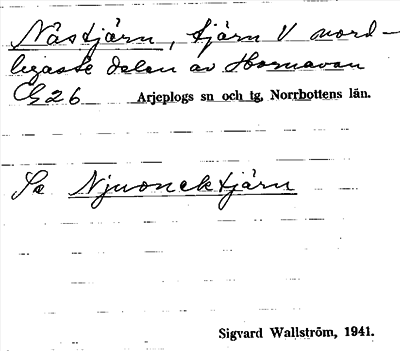 Nåstjärn, tjärn V nord-
ligaste delen av Hornavan
Eg 26 Arjeplogs sn och tg, Norrbottens län.
Se Njuonektjärn
Sigvard Wallström, 1941.